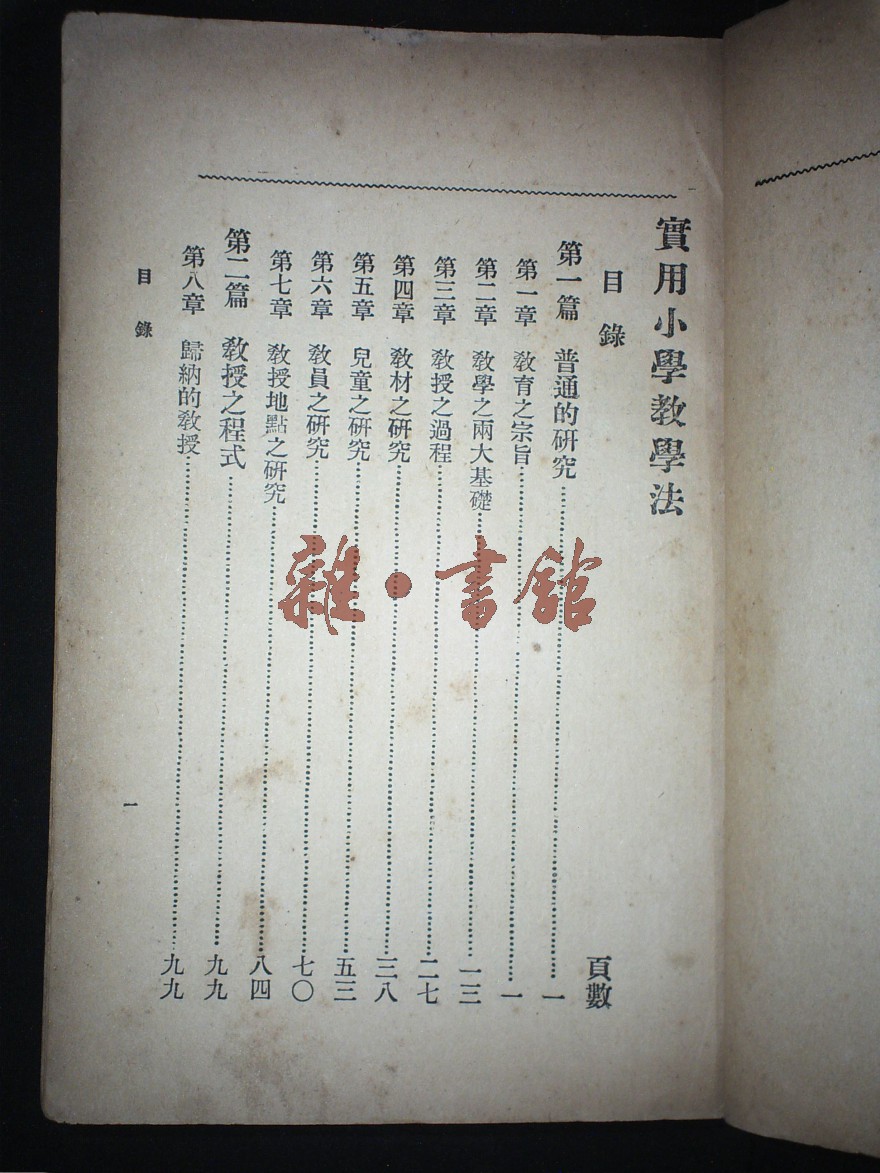 實用小學教學法
目錄
頁數
第一篇 普通的研究 一
第一章 教育之宗旨 一
第二章 教學之兩大基礎 一三
第三章 教授之過程 二七
第四章 教材之研究 三八
第五章 兒童之研究 五三
第六章 教員之研究 七〇
第七章 教授地點之研究 八四
第二篇 教授之程式 九九
第八章 歸納的教授 九九
目錄
一
雜·書館